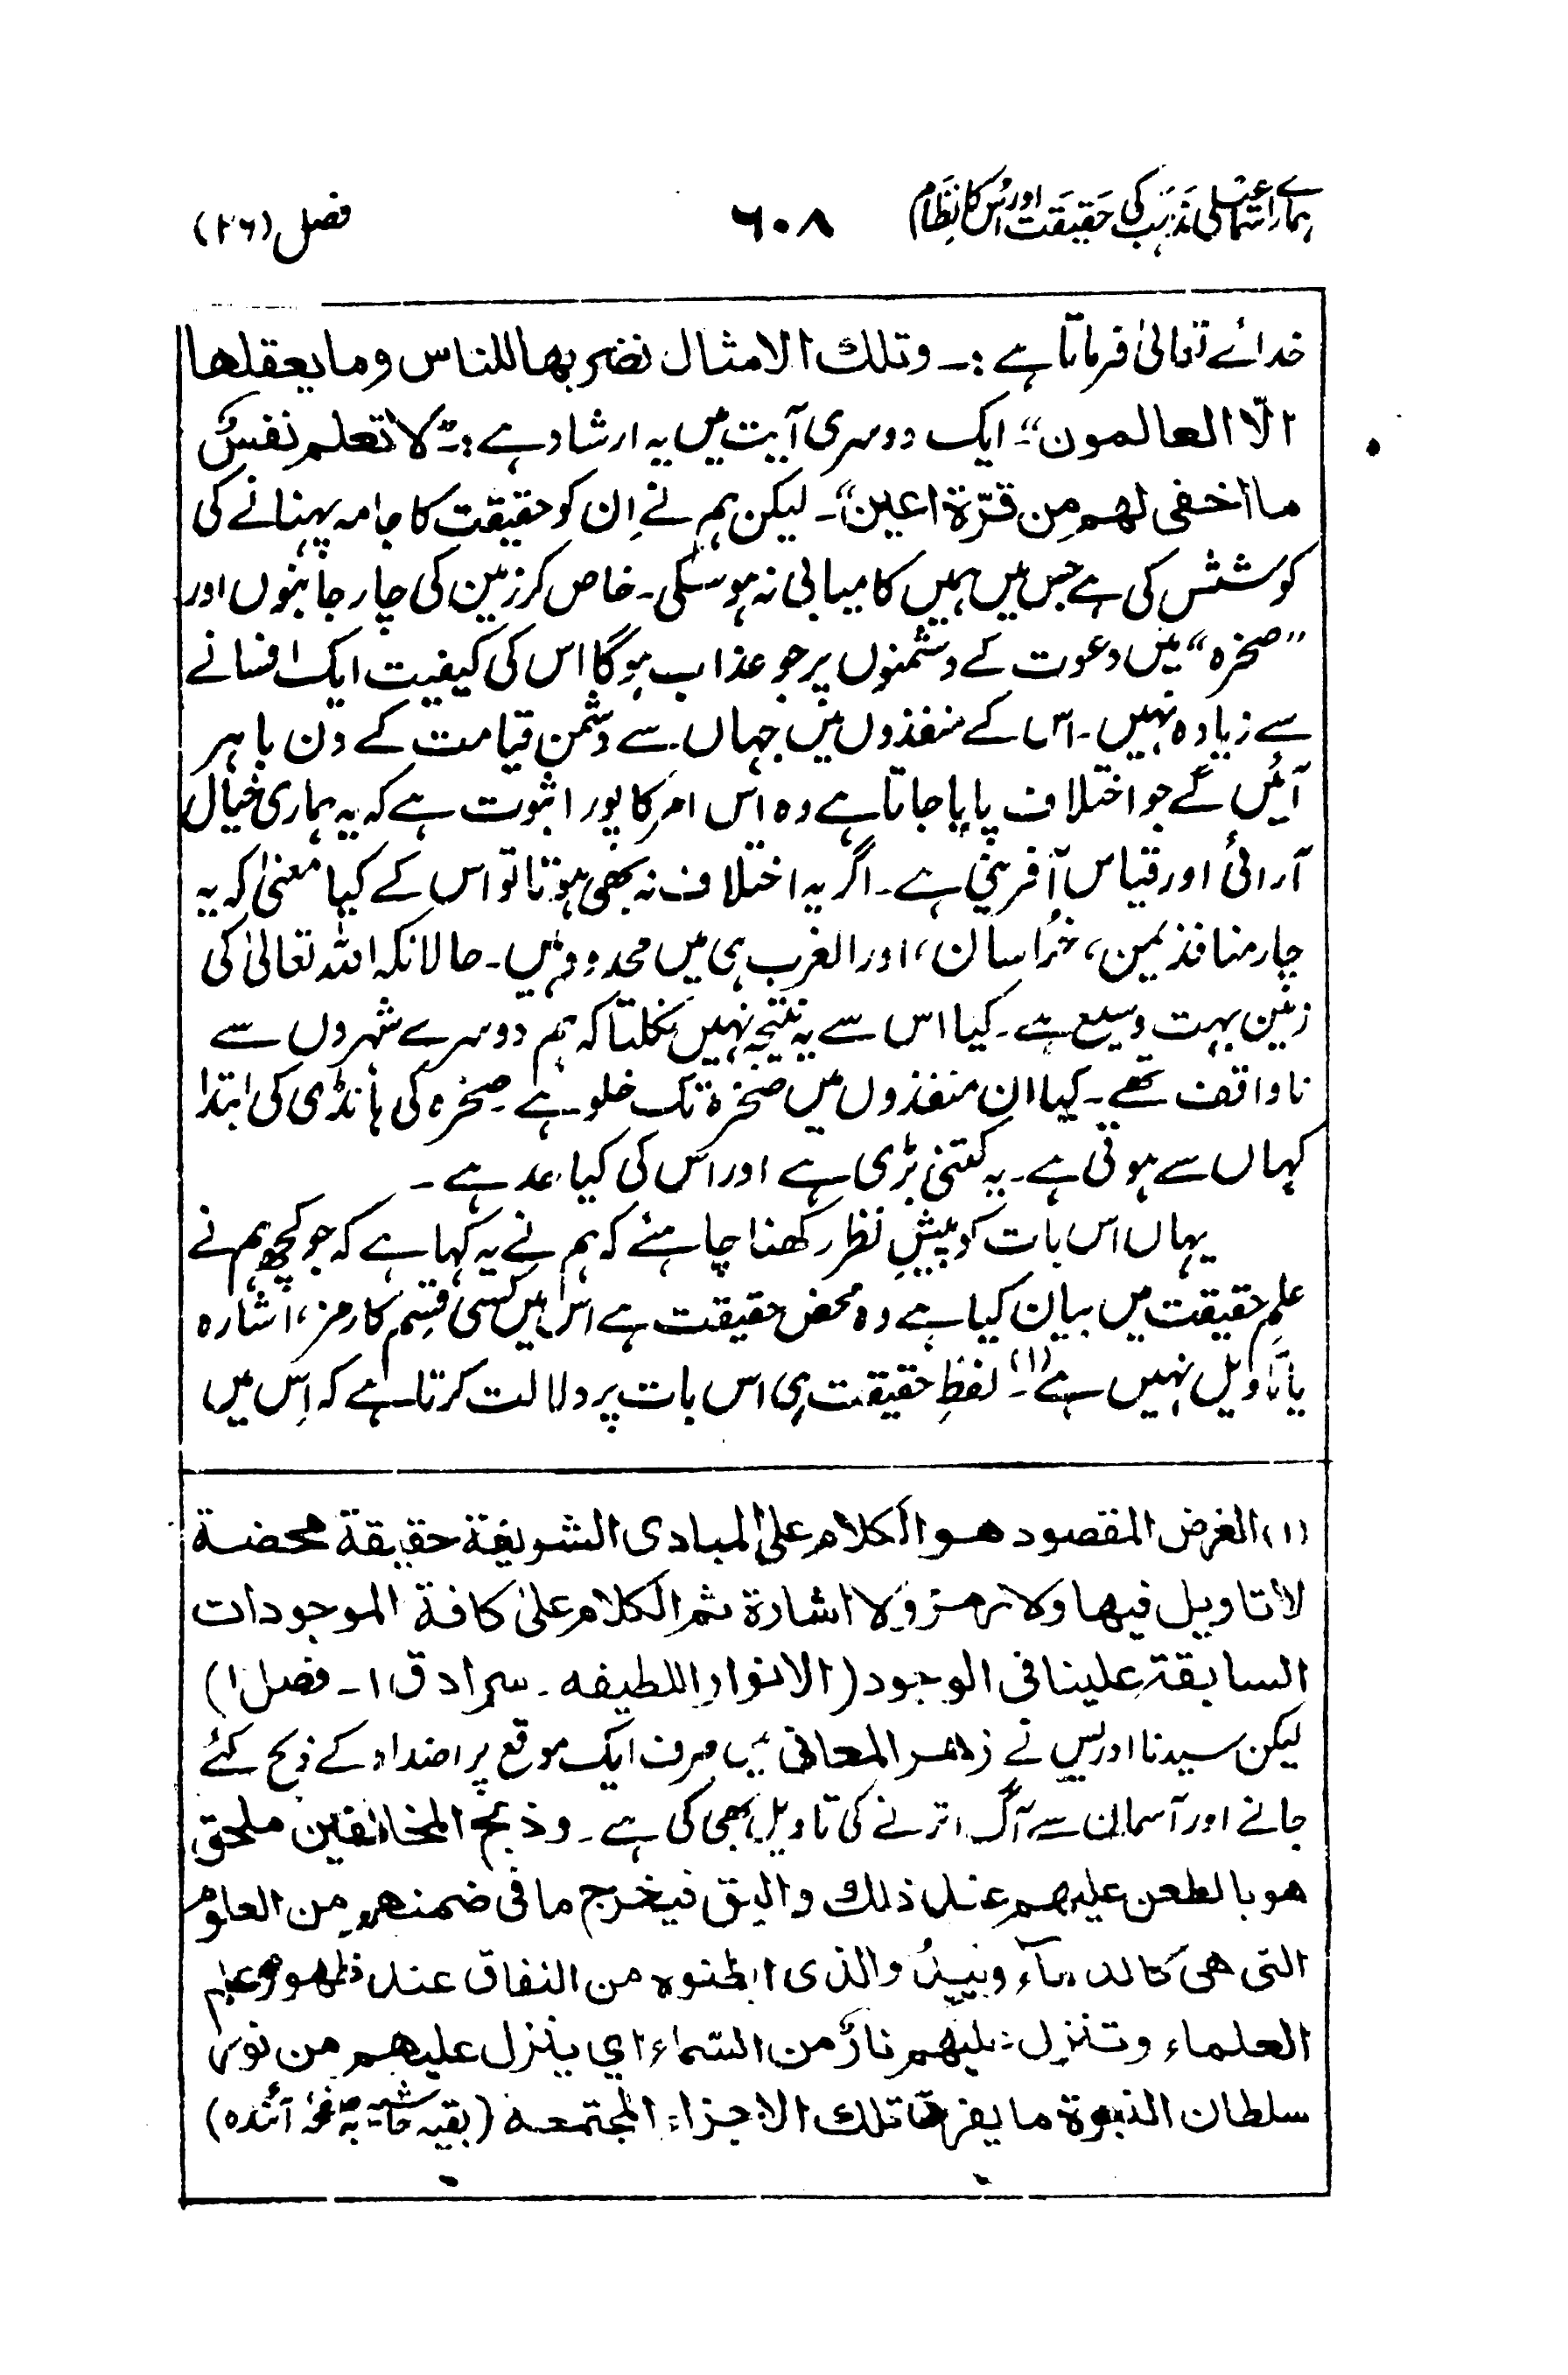 ہمارے اسماعیلی مذہب کی حقیقت اور اُس کا نظام ۶۰۸ فصل (۲۶)
خدائے تعالیٰ فرماتا ہے :۔ وتلك الامثال نضربها للناس وما يعقلها
الّا العالمون“۔ ایک دوسری آیت میں یہ ارشاد ہے :۔ ”لا تعلم نفسٌ
ما اخفى لهم مِن قرّة اعين“۔ لیکن ہم نے اِن کو حقیقت کا جامہ پہنانے کی
کوشش کی ہے جس میں ہمیں کامیابی نہ ہوسکی۔ خاص کر زمین کی چار جانبوں اور
”صخرہ“ میں دعوت کے دشمنوں پر جو عذاب ہوگا اس کی کیفیت ایک افسانے
سے زیادہ نہیں۔ اس کے منفذوں میں جہاں سے دشمن قیامت کے دن باہر
آئیں گے جو اختلاف پایا جاتا ہے وہ اس امر کا پورا ثبوت ہے کہ یہ ہماری خیال
آرائی اور قیاس آفرینی ہے۔ اگر یہ اختلاف نہ بھی ہوتا تو اس کے کیا معنیٰ کہ یہ
چار منافذ یمن، خراسان، اور الغرب ہی میں محدود ہیں۔ حالانکہ اللہ تعالیٰ کی
زمین بہت وسیع ہے۔ کیا اس سے یہ نتیجہ نہیں نکلتا کہ ہم دوسرے شہروں سے
ناواقف تھے۔ کیا ان منفذوں میں صخرہ تک خلو ہے۔ صخرہ کی ہانڈی کی ابتدا
کہاں سے ہوتی ہے۔ یہ کتنی بڑی ہے اور اس کی کیا حد ہے۔
یہاں اس بات کو پیشِ نظر رکھنا چاہئے کہ ہم نے یہ کہا ہے کہ جو کچھ ہم نے
علمِ حقیقت میں بیان کیا ہے وہ محض حقیقت ہے اس میں کسی قسم کا رمز، اشارہ
یا تاویل نہیں ہے(۱)۔ لفظِ حقیقت ہی اس بات پر دلالت کرتا ہے کہ اِس میں
(۱) الغرض المقصود هو الكلام على المبادى الشريفة حقيقة محضة
لا تاويل فيها ولا رمز ولا اشارة ثم الكلام على كافة الموجودات
السابقة علينا فى الوجود (الانوار اللطيفه۔ سرادق ۱۔ فصل ۱)
لیکن سیدنا ادریس نے زهر المعانی میں صرف ایک موقع پر اضداد کے ذبح کئے
جانے اور آسمان سے آگ اترنے کی تاویل بھی کی ہے۔ وذبح المخالفين ملحق
هو بالطعن عليهم عند ذلك واليق فيخرج ما فى ضمنهم من العلوم
التى هى كالدماء وبيين والذى ابطنوه من النفاق عند ظهور علم
العلماء وتنزل عليهم نارٌ من السّماء اي ينزل عليهم من نور
سلطان النبوة ما يفرق تلك الاجزاء المجتمعة (بقیہ حاشیہ بہ صفحۂ آئندہ)